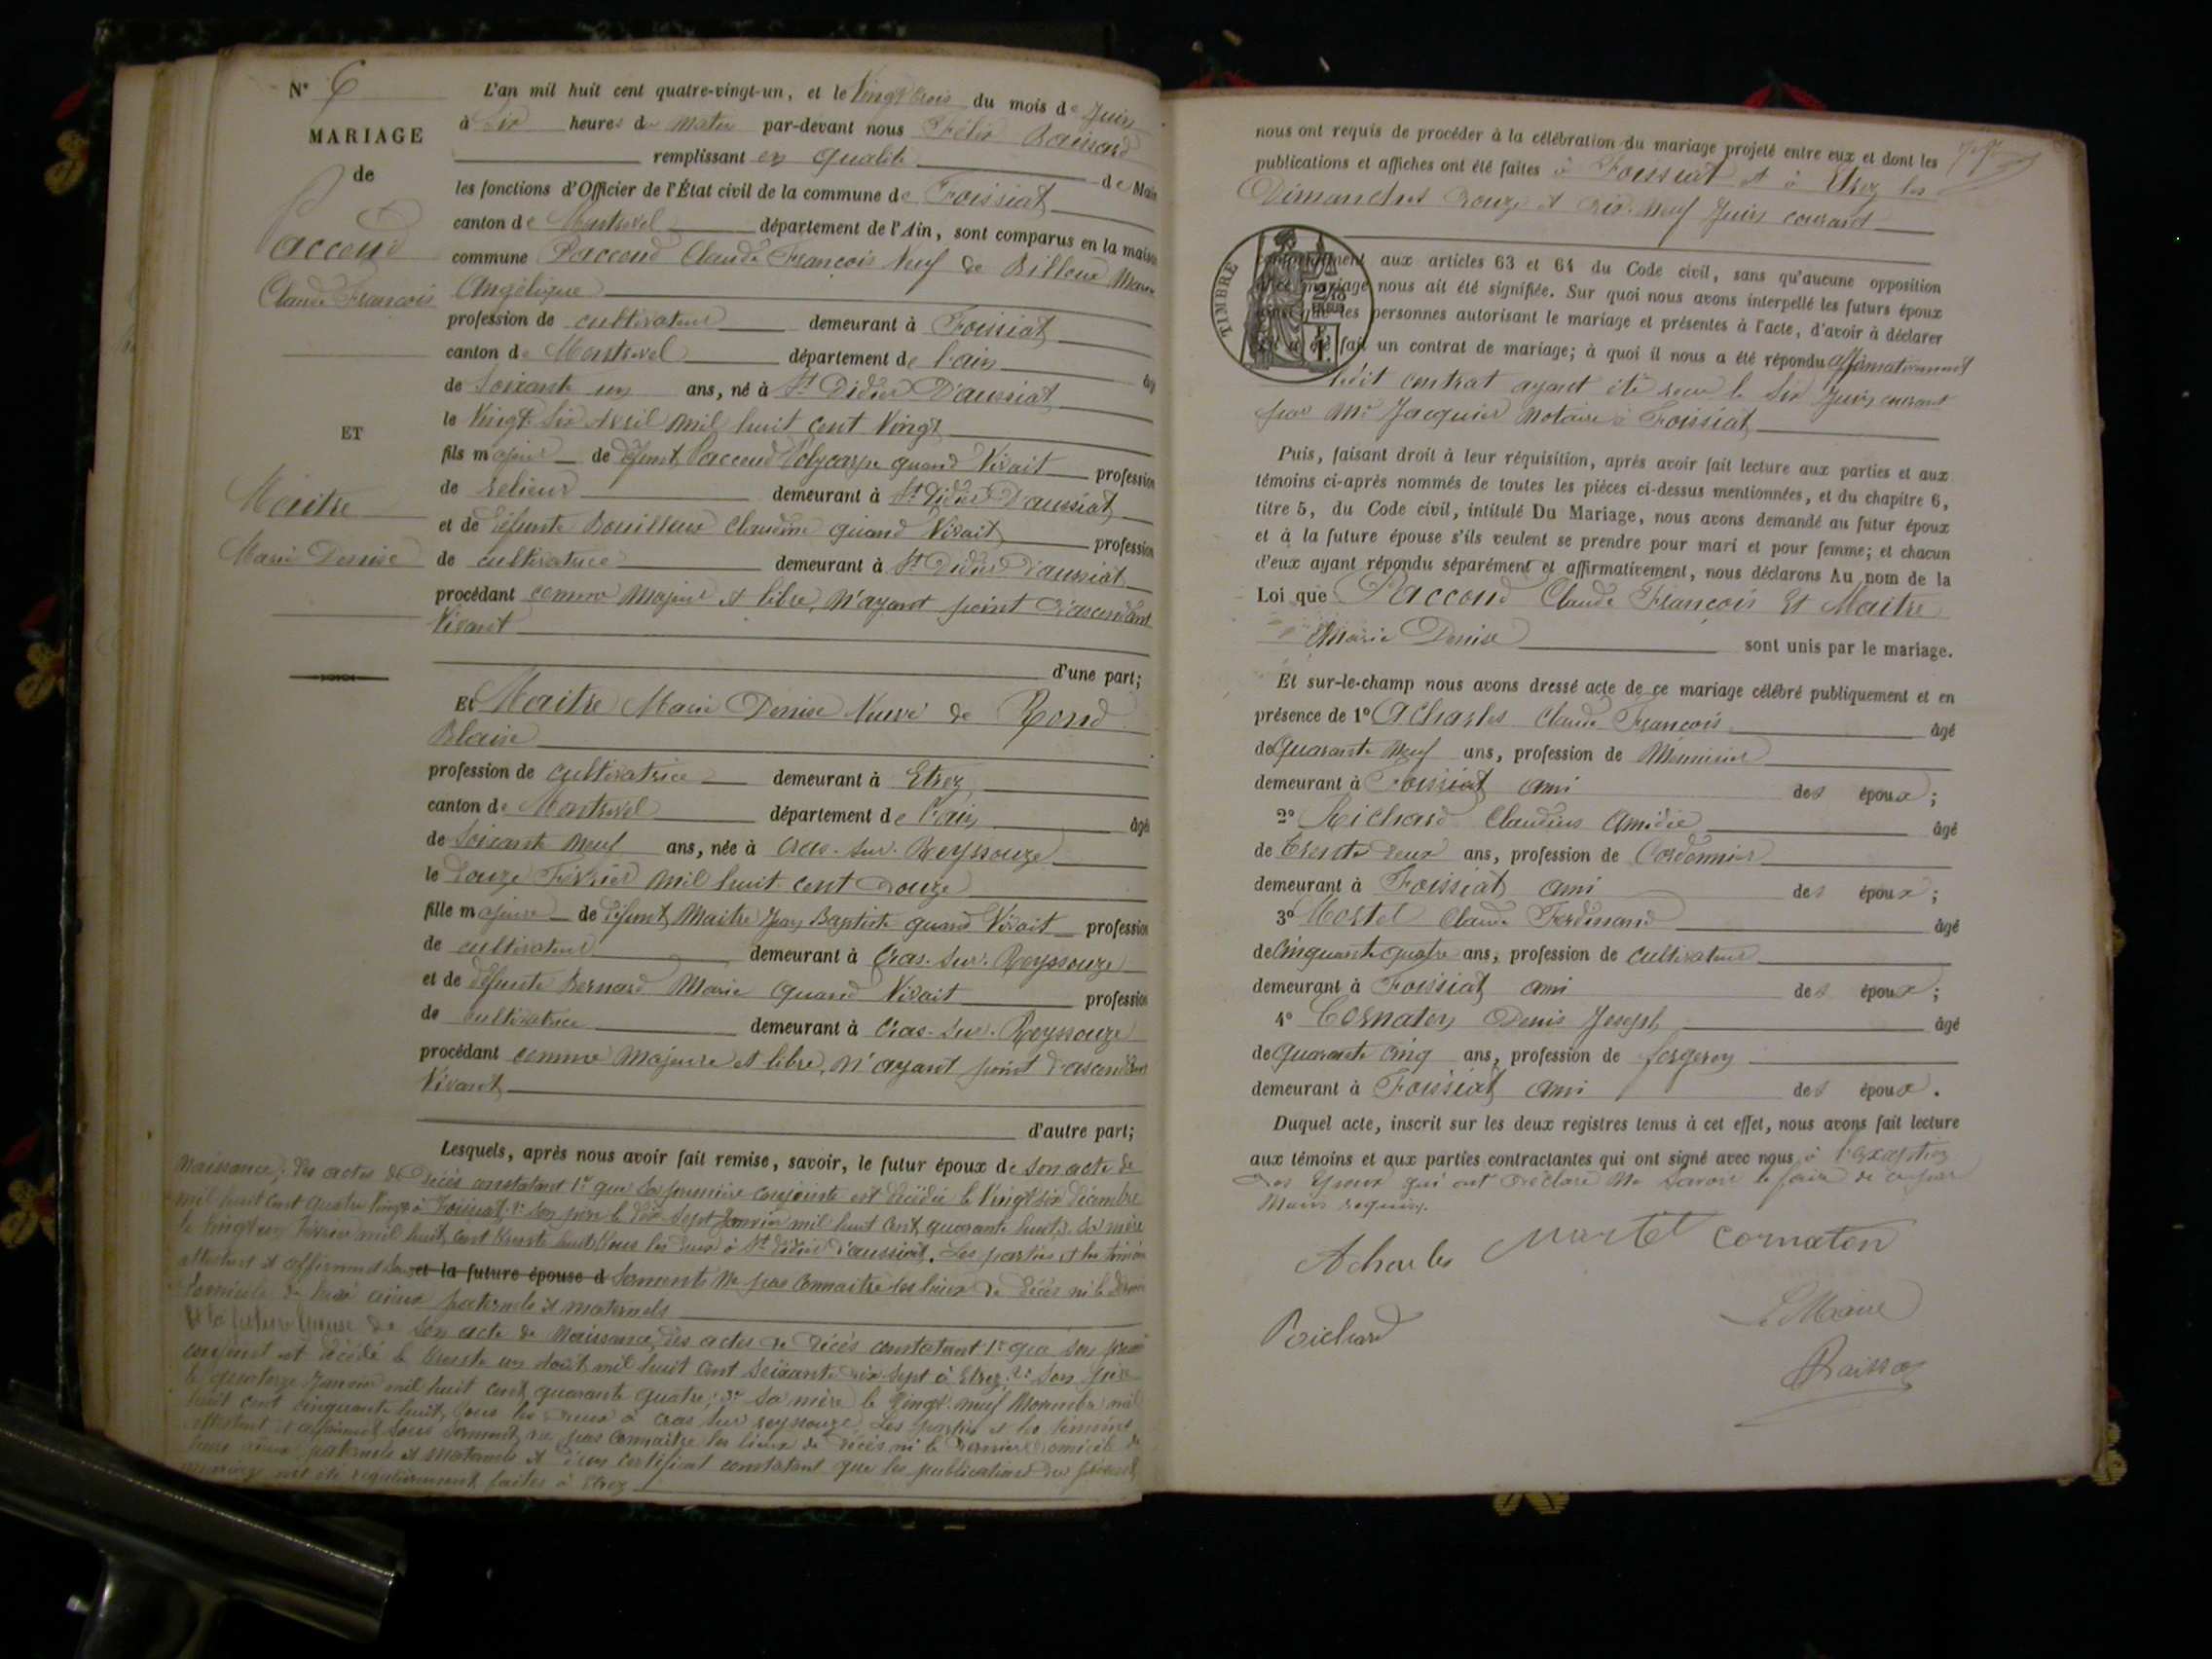 N° 6
MARIAGE
de
Paccoud
Claude François
ET
Maitre
Marie Denise
L'an mil huit cent quatre-vingt-un, et le Vingt trois du mois de Juin
à Six heures du matin par-devant nous Félix Raissard
remplissant en qualité de Maire
les fonctions d'Officier de l'État civil de la commune de Foissiat
canton de Montrevel département de l'Ain, sont comparus en la maison
commune Paccoud Claude François Veuf de Billoud Marie
Angélique
profession de cultivateur demeurant à Foissiat
canton de Montrevel département de l'ain âgé
de Soixante un ans, né à St Didier D'aussiat
le Vingt Six Avril mil huit cent Vingt
fils majeur de défunt Paccoud Polycarpe quand Vivait profession
de relieur demeurant à St Didier D'aussiat
et de défunte Bouilloux Claudine quand Vivait profession
de cultivatrice demeurant à St Didier D'aussiat
procédant comme Majeur et libre, N'ayant point d'ascendant
Vivant
d'une part;
Et Maitre Marie Denise Veuve de Rond
Blaise
profession de cultivatrice demeurant à Etrez
canton de Montrevel département de l'ain âgé
de Soixante Neuf ans, née à Cras-sur-Reyssouze
le Douze Février mil huit cent Douze
fille majeure de défunt Maitre Jean Baptiste quand Vivait profession
de cultivateur demeurant à Cras-sur-Reyssouze
et de défunte Bernard Marie quand Vivait profession
de cultivatrice demeurant à Cras-sur-Reyssouze
procédant comme Majeure et libre, N'ayant point d'ascendant
Vivant
d'autre part;
Lesquels, après nous avoir fait remise, savoir, le futur époux de Son acte de
Naissance; des actes de Décès constatant 1° que Sa première conjointe est décédée le Vingt six Décembre
mil huit cent quatre Vingt à Foissiat, 2° Son père le Dix Sept Janvier mil huit cent quarante huit, 3° Sa mère
le Vingt un Février mil huit cent trente huit tous les deux à St Didier D'aussiat. Les parties et les témoins
attestent et affirment sous et la future épouse d Serment Ne pas Connaitre les lieux de Décès ni le Dernier
domicile de leurs aieux paternels et maternels
Et la future Epouse de Son acte de Naissance, des actes de Décès constatant 1° que Son premier
conjoint est décédé le trente un Août mil huit cent soixante dix-sept à Etrez, 2° Son père
le quatorze Janvier mil huit cent quarante quatre; 3° Sa mère le Vingt neuf Novembre mil
huit cent Cinquante huit, tous les deux à Cras sur reyssouze. Les parties et les témoins
attestent et affirment sous Serment ne pas Connaitre les lieux de Décès ni le Dernier Domicile de
leurs aieux paternels et maternels et d'un certificat constatant que les publications du présent
mariage ont été régulièrement faites à Etrez
nous ont requis de procéder à la célébration du mariage projeté entre eux et dont les
publications et affiches ont été faites à Foissiat et à Etrez les
Dimanches Douze et Dix-Neuf Juin courant
TIMBRE
conformément aux articles 63 et 64 du Code civil, sans qu'aucune opposition
audit mariage nous ait été signifiée. Sur quoi nous avons interpellé les futurs époux
ainsi que les personnes autorisant le mariage et présentes à l'acte, d'avoir à déclarer
s'il a été fait un contrat de mariage; à quoi il nous a été répondu affirmativement
ledit contrat ayant été reçu le Six Juin courant
par Me Jacquier Notaire à Foissiat
Puis, faisant droit à leur réquisition, après avoir fait lecture aux parties et aux
témoins ci-après nommés de toutes les pièces ci-dessus mentionnées, et du chapitre 6,
titre 5, du Code civil, intitulé Du Mariage, nous avons demandé au futur époux
et à la future épouse s'ils veulent se prendre pour mari et pour femme; et chacun
d'eux ayant répondu séparément et affirmativement, nous déclarons Au nom de la
Loi que Paccoud Claude François Et Maitre
Marie Denise sont unis par le mariage.
Et sur-le-champ nous avons dressé acte de ce mariage célébré publiquement et en
présence de 1° Acharles Claude François âgé
de Quarante Neuf ans, profession de Menuisier
demeurant à Foissiat ami des époux;
2° Richard Claudius Amédée âgé
de trente deux ans, profession de Cordonnier
demeurant à Foissiat ami des époux;
3° Mortel Claude Ferdinand âgé
de Cinquante quatre ans, profession de cultivateur
demeurant à Foissiat ami des époux;
4° Cornaton Denis Joseph âgé
de Quarante cinq ans, profession de forgeron
demeurant à Foissiat ami des époux.
Duquel acte, inscrit sur les deux registres tenus à cet effet, nous avons fait lecture
aux témoins et aux parties contractantes qui ont signé avec nous à l'exception
des Epoux qui ont Déclaré Ne Savoir le faire de ce faire
Mains requis.
Acharles Martel Cornaton
Richard
Le Maire
Raissard